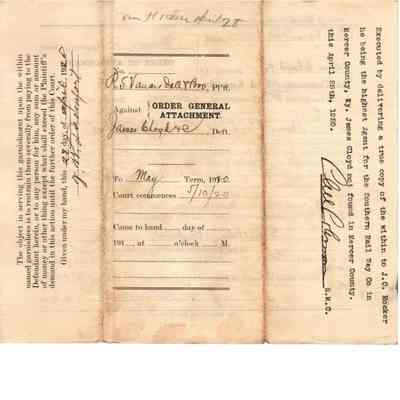 The object in serving this garnishment upon the within
named garnishees is to restrain them severally from paying to the
Defendant herein, or to any person for him, any sum or amount
of money or other thing except what shall exceed the Plaintiff's
demand in this action until the further order of this Court.
Given under my hand, this 28 day of April 1920
Plff.
Against
ORDER GENERAL
ATTACHMENT.
James Cloyd &c, Deft.
To May Term,
Court commences 5/10/20
Came to hand day of
191 , at o'clock M.
Executed by delivering a true copy of the within to J.C. Booker
he being the highest Agent for the Southern Rail Way Co in
Mercer County, Ky. James Cloyd not found in Mercer County.
this April 28th, 1920.
S.M.C.